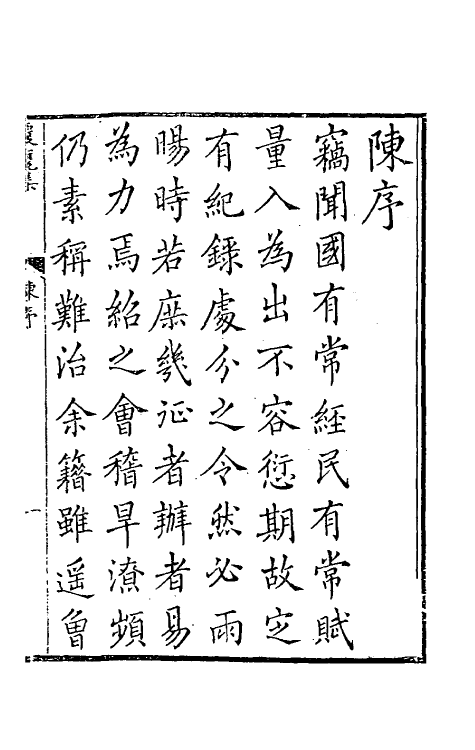 陳序
竊聞國有常經民有常賦
量入為出不容愆期故定
有紀錄處分之令然必雨
暘時若庶㡬征者辦者易
為力焉紹之會稽旱潦頻
仍素稱難治余籍雖遥曾
陳序
一